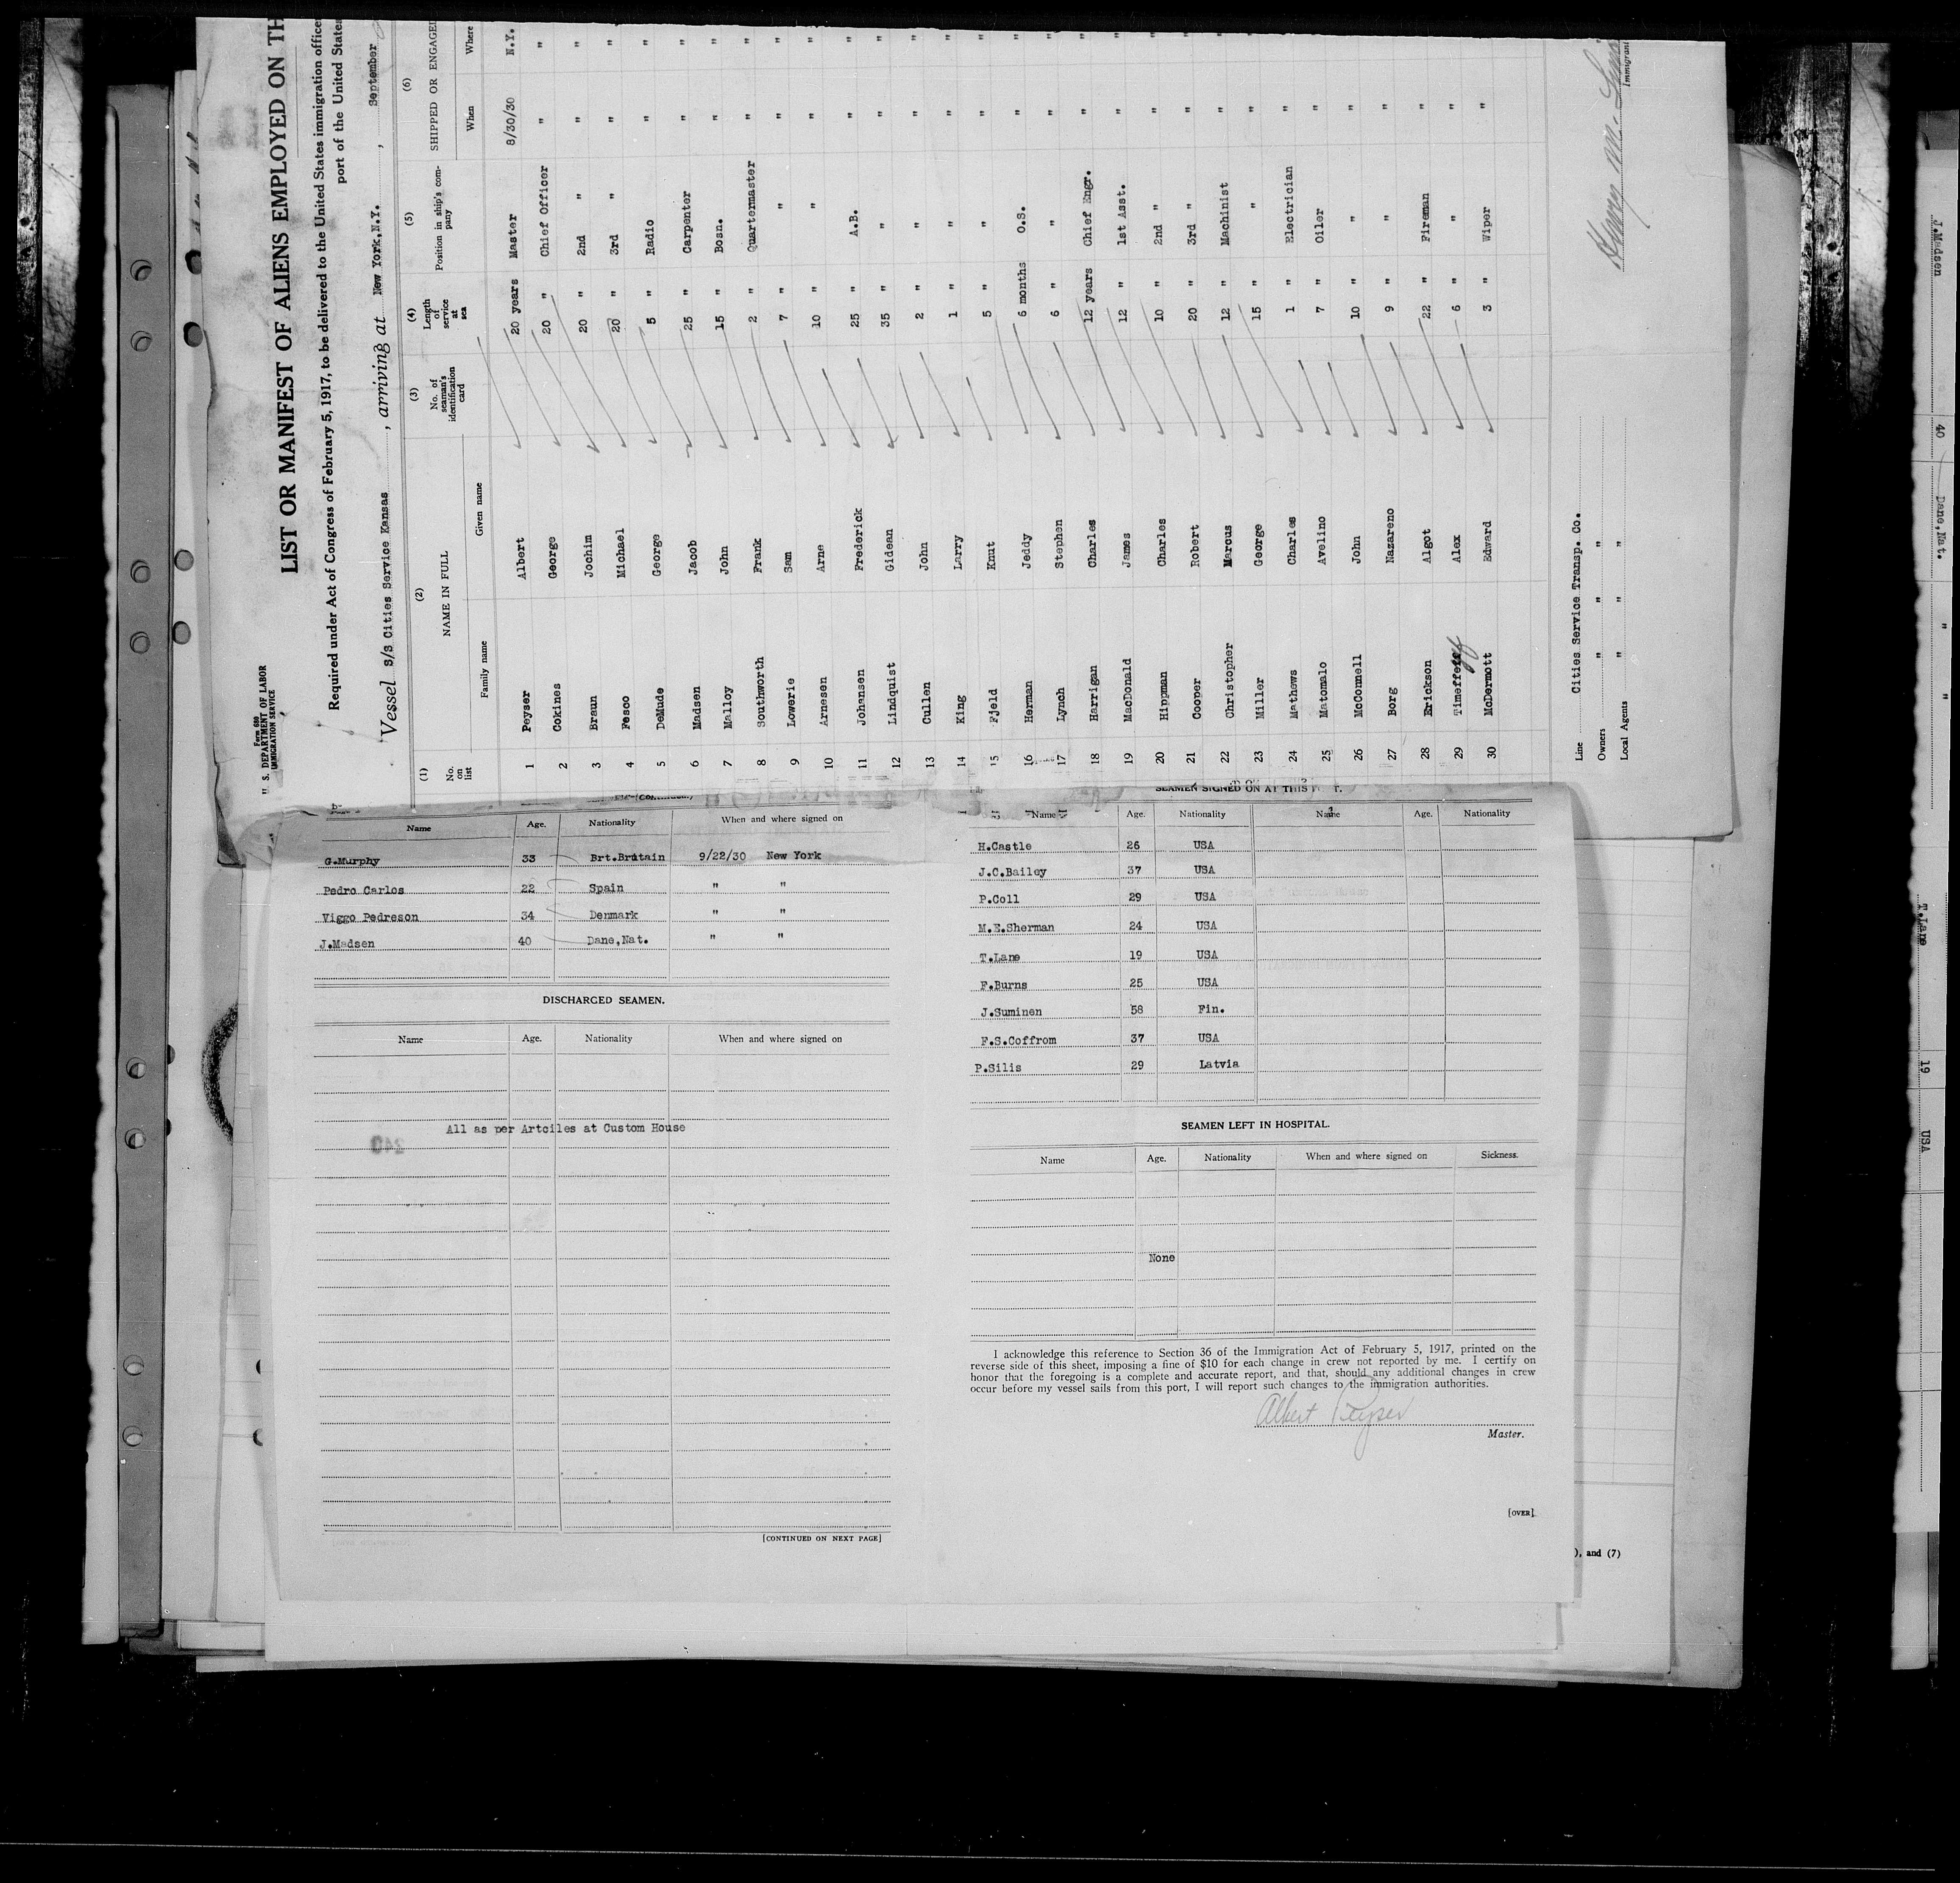 Form 680
U. S. DEPARTMENT OF LABOR
IMMIGRATION SERVICE
LIST OR MANIFEST OF ALIENS EMPLOYED ON TH
Required under Act of Congress of February 5, 1917, to be delivered to the United States immigration officer
port of the United States
Vessel s/s Cities Service Kansas, arriving at New York,N.Y., September
(1) (2) (3) (4) (5) (6)
No. on list NAME IN FULL No. of seaman's identification card Length of service at sea Position in ship's company SHIPPED OR ENGAGED
Family name Given name When Where
1 Peyser Albert 20 years Master 8/30/30 N.Y.
2 Cokines George 20 " Chief Officer " "
3 Braun Jochim 20 " 2nd " " "
4 Fesco Michael 20 " 3rd " " "
5 DeMude George 5 " Radio " "
6 Madsen Jacob 25 " Carpenter " "
7 Malloy John 15 " Bosn. " "
8 Southworth Frank 2 " Quartermaster " "
9 Lowerie Sam 7 " " " "
10 Arnesen Arne 10 " " " "
11 Johansen Frederick 25 " A.B. " "
12 Lindquist Gidean 35 " " " "
13 Cullen John 2 " " " "
14 King Larry 1 " " " "
15 Fjeld Knut 5 " " " "
16 Herman Jeddy 6 months O.S. " "
17 Lynch Stephen 6 " " " "
18 Harrigan Charles 12 years Chief Engr. " "
19 MacDonald James 12 " 1st Asst. " "
20 Hippman Charles 10 " 2nd " " "
21 Cooper Robert 20 " 3rd " " "
22 Christopher Marcus 12 " Machinist " "
23 Miller George 15 " " "
24 Mathews Charles 1 " Electrician " "
25 Matomalo Avelino 7 " Oiler " "
26 McConnell John 10 " " " "
27 Borg Nazareno 9 " " " "
28 Erickson Algot 22 " Fireman " "
29 Timeffeff Alex 6 " " " "
30 McDermott Edward 3 " Wiper " "
Line Cities Service Transp. Co.
Owners " " "
Local Agents " " "
Immigrant
Name Age. Nationality When and where signed on
G.Murphy 33 Brt.Britain 9/22/30 New York
Pedro Carlos 22 Spain " "
Viggo Pedreson 34 Denmark " "
J.Madsen 40 Dane,Nat. " "
DISCHARGED SEAMEN.
Name Age. Nationality When and where signed on
All as per Artciles at Custom House
240
[CONTINUED ON NEXT PAGE]
SEAMEN SIGNED ON AT THIS
Name Age. Nationality Name Age. Nationality
H.Castle 26 USA
J.C.Bailey 37 USA
P.Coll 29 USA
M.E.Sherman 24 USA
T.Lane 19 USA
F.Burns 25 USA
J.Suminen 58 Fin.
F.S.Coffrom 37 USA
P.Silis 29 Latvia
SEAMEN LEFT IN HOSPITAL.
Name Age. Nationality When and where signed on Sickness.
None
I acknowledge this reference to Section 36 of the Immigration Act of February 5, 1917, printed on the
reverse side of this sheet, imposing a fine of $10 for each change in crew not reported by me. I certify on
honor that the foregoing is a complete and accurate report, and that, should any additional changes in crew
occur before my vessel sails from this port, I will report such changes to the immigration authorities.
Albert Peyser
Master.
[OVER]
), and (7)
J.Madsen 40 Dane,Nat. " "
T.Lane 19 USA